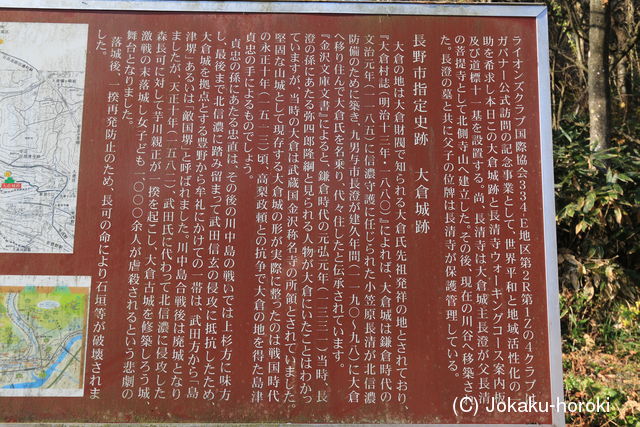 ライオンズクラブ国際協会334-E地区第2R第1Zの4クラブ
ガバナー公式訪問の記念事業として、世界平和と地域活性化の
助を希求し本日この大倉城跡と長清寺ウォーキングコース案内板
及び道標十一基を設置する。尚、長清寺は大倉城主長澄が父長清
の菩提寺として北側寺山へ建立した。その後、現在の川谷へ移築され
た。長澄の墓と共に父子の位牌は長清寺が保護管理している。
長野市指定史跡 大倉城跡
大倉の地は大倉財閥で知られる大倉氏先祖発祥の地とされており、
『大倉村誌』(明治十三年・一八八〇)によれば、大倉城は鎌倉時代の
文治元年(一一八五)に信濃守護に任じられた小笠原長清が北信濃
防備のために築き、九男与市長澄が建久年間(一一九〇〜九八)に大倉
へ移り住んで大倉氏を名乗り、代々住したと伝承されています。
『金沢文庫文書』によると、鎌倉時代の元弘元年(一三三一)当時、長
澄の孫にあたる弥四郎隆綱と見られる人物が大倉にいたことはわかっ
ていますが、当時の大倉は武蔵国金沢称名寺の所領とされていました。
堅固な山城として現存する大倉城の形が実際に整ったのは戦国時代
の永正十年(一五一三)頃、高梨政頼との抗争で大倉の地を得た島津
貞忠の手によるものでしょう。
貞忠の孫にあたる忠直は、その後の川中島の戦いでは上杉方に味方
し、最後まで北信濃に踏み留まって武田信玄の侵攻に抵抗したため、
大倉城を拠点とする豊野から牟礼にかけての一帯は、武田方から「島
津堺」あるいは「敵国堺」と呼ばれました。川中島合戦後は廃城となり
ましたが、天正十年(一五八二)、武田氏に代わって北信濃に侵攻した
森長可に対して芋川親正が一揆を起こし、大倉古城を修築しろう城、
激戦の末落城し女子ども一〇〇〇余人が虐殺されるという悲劇の
舞台となりました。
落城後、一揆再発防止のため、長可の命により石垣等が破壊されま
した。
(C) Jokaku-horoki